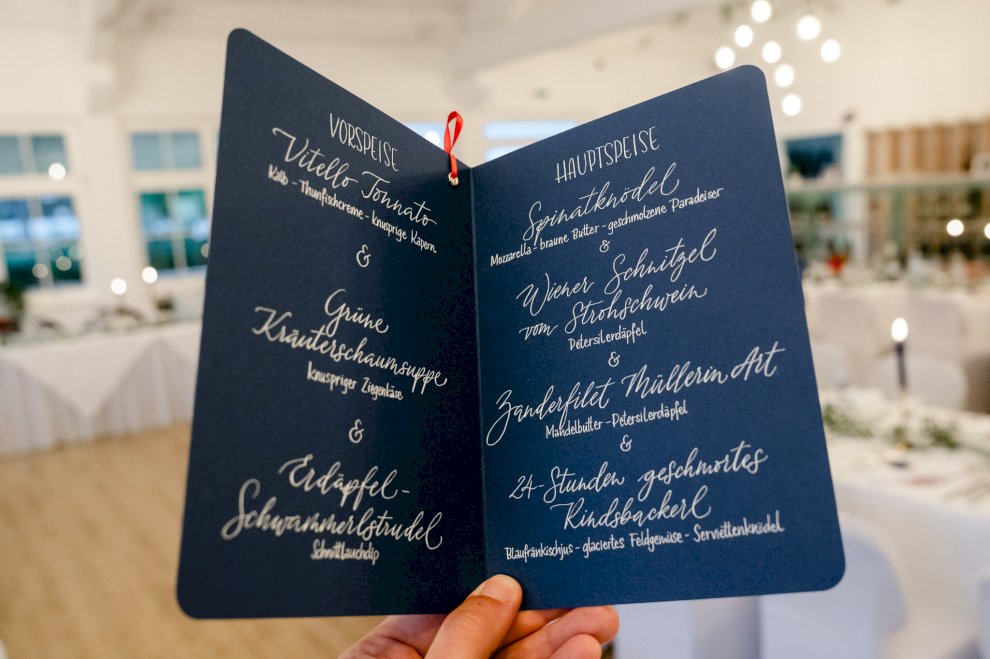 VORSPEISE
Vitello Tonnato
Kalb - Thunfischcreme - knusprige Kapern
&
Grüne
Kräuterschaumsuppe
Knuspriger Ziegenkäse
&
Erdäpfel-
Schwammerlstrudel
Schnittlauchdip
HAUPTSPEISE
Spinatknödel
Mozzarella - braune Butter - geschmolzene Paradeiser
&
Wiener Schnitzel
vom Strohschwein
Petersilerdäpfel
&
Zanderfilet Müllerin Art
Mandelbutter - Petersilerdäpfel
&
24-Stunden geschmortes
Rindsbackerl
Blaufränkischjus - glaciertes Feldgemüse - Serviettenknödel